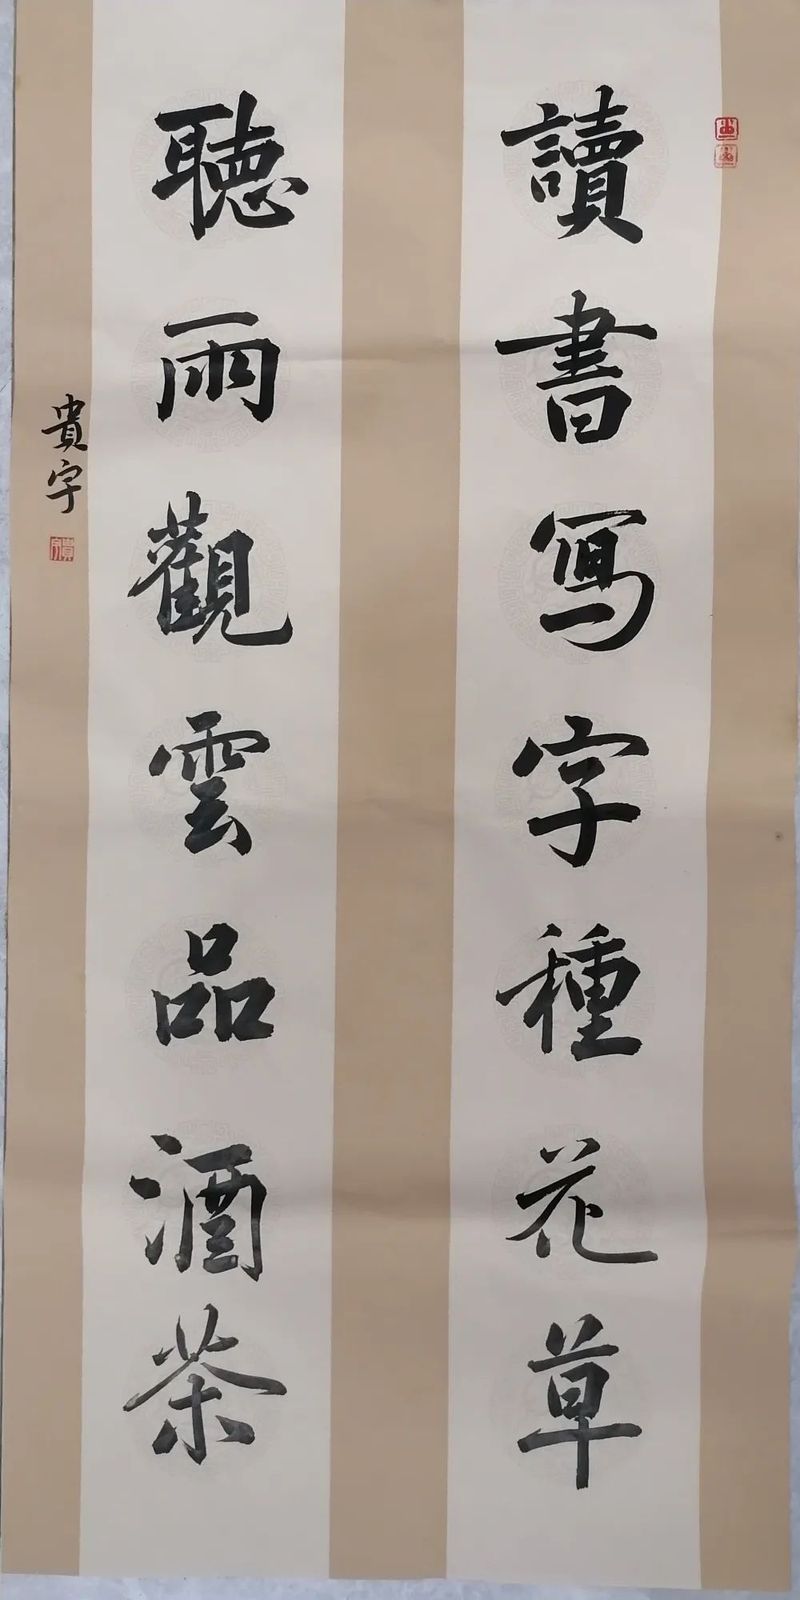 讀書寫字種花草
聽雨觀雲品酒茶
貴字